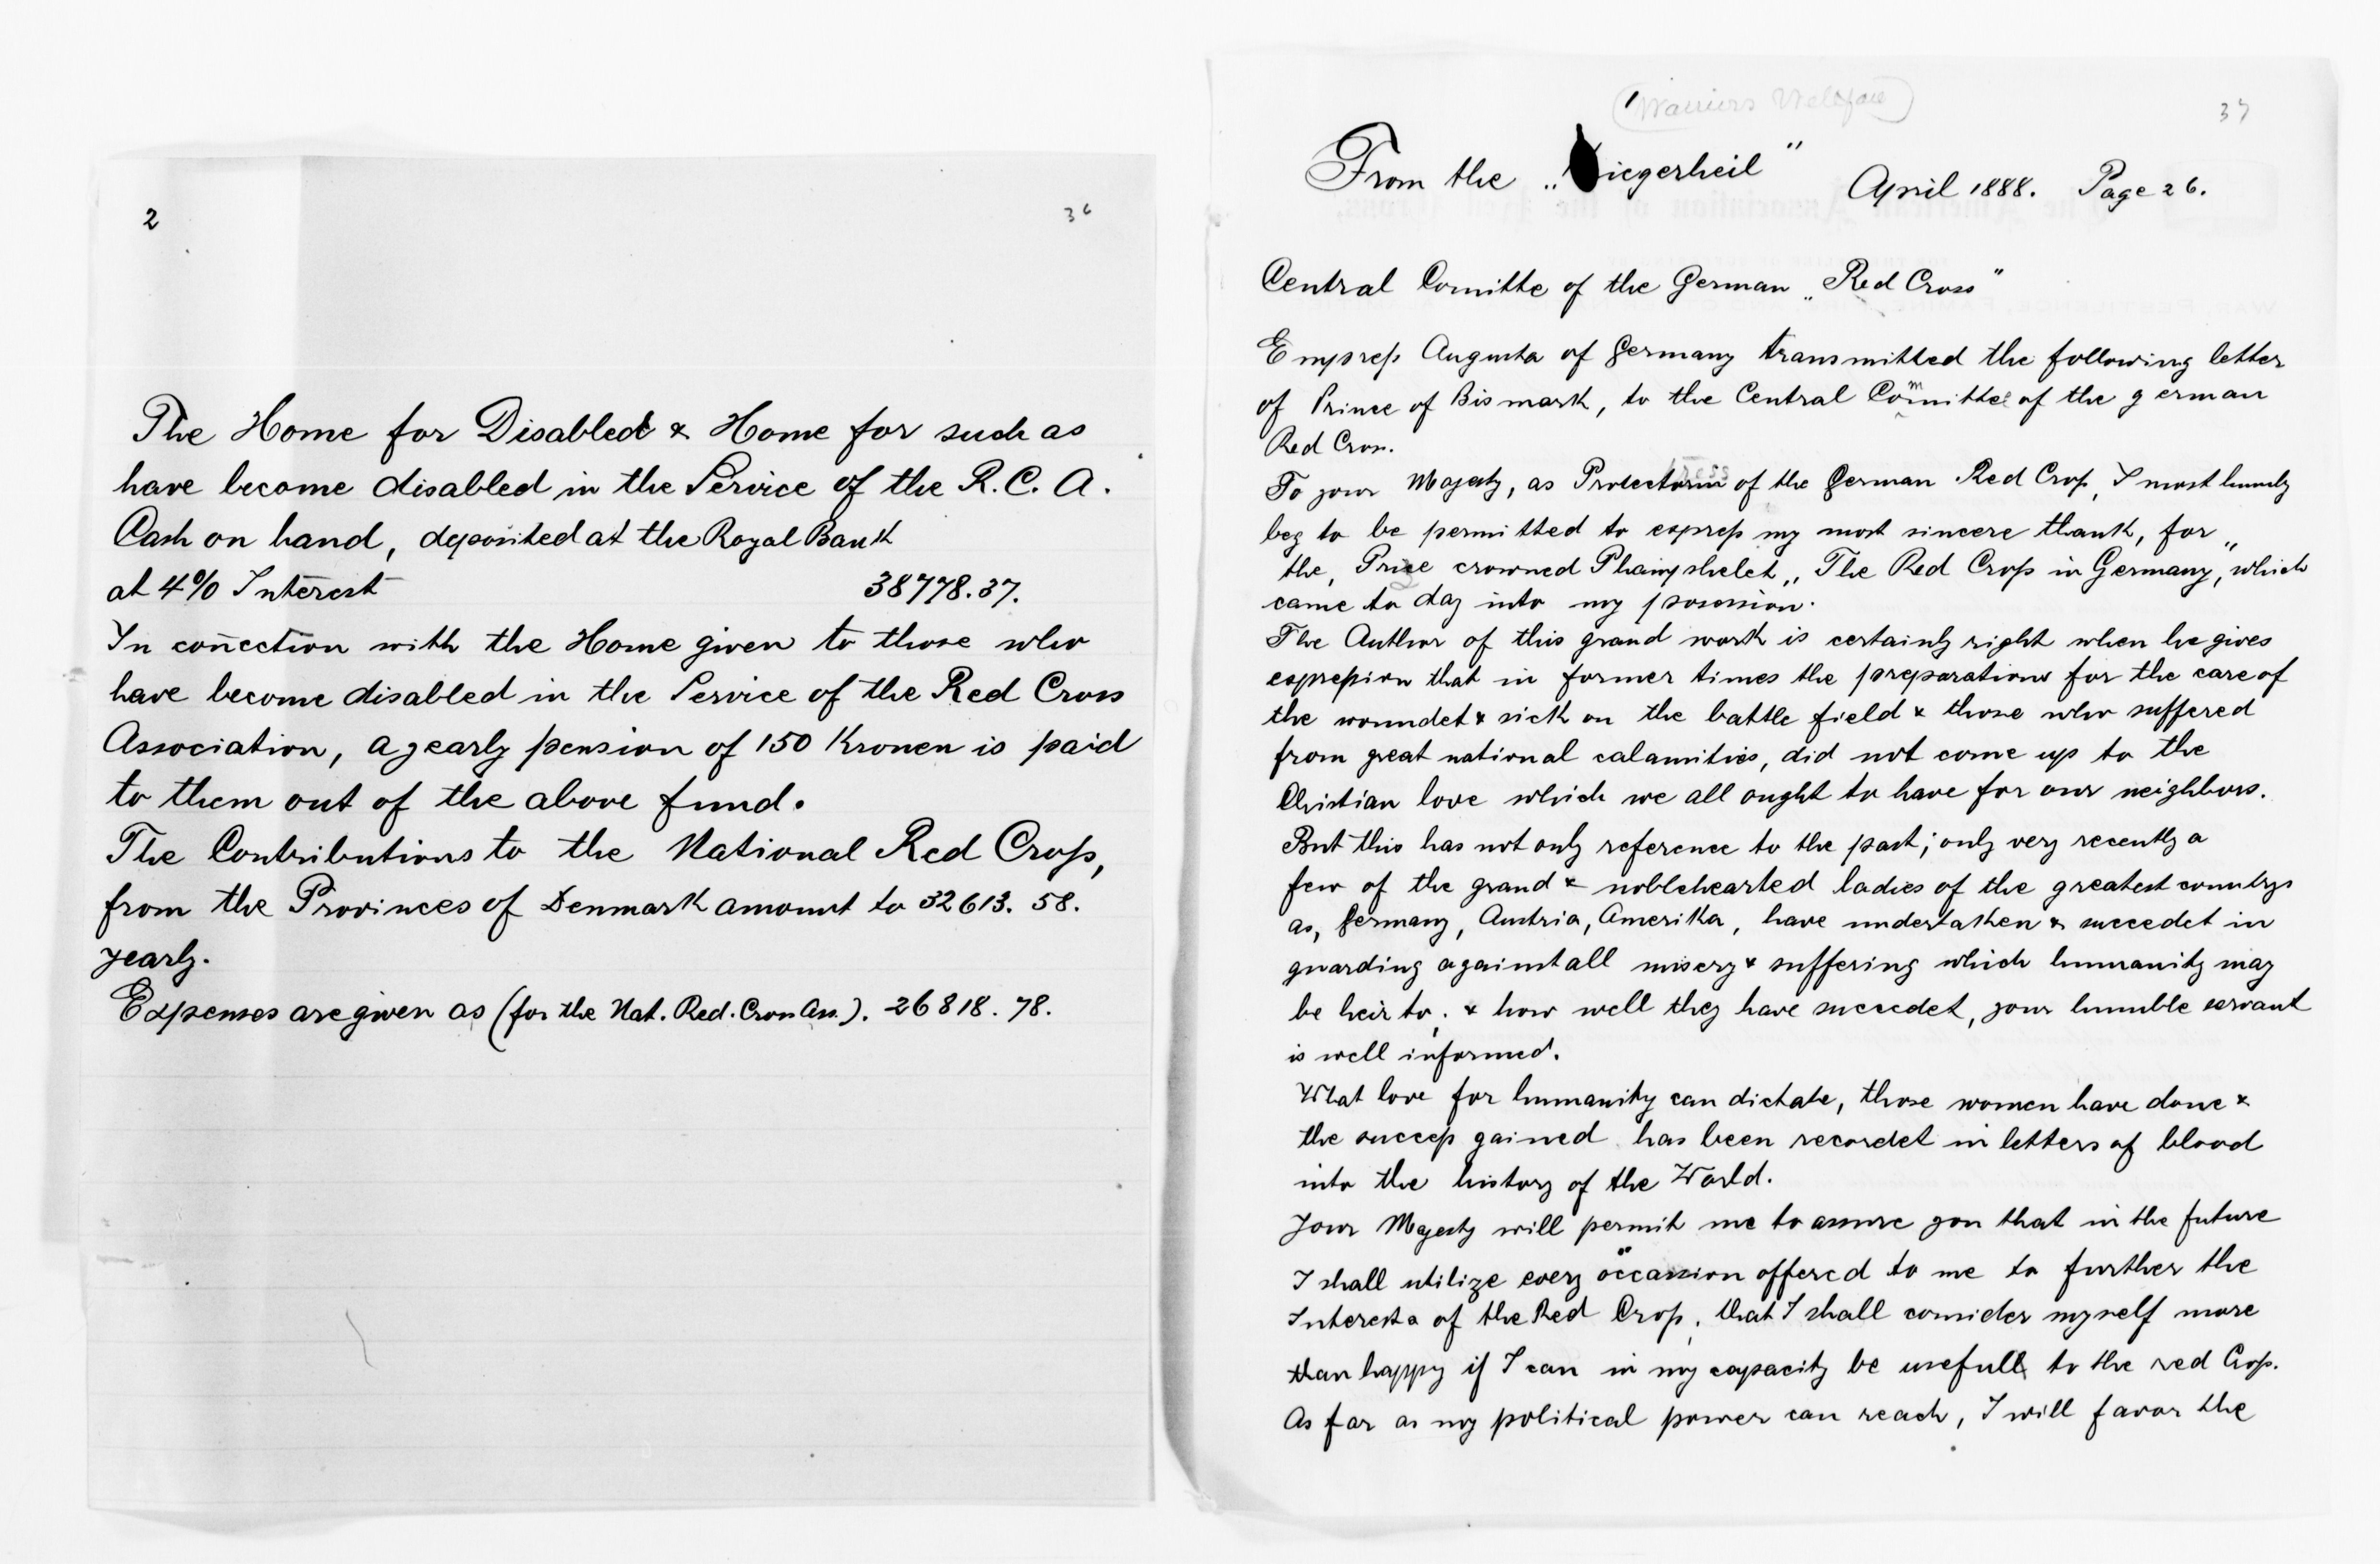 2
36
The Home for Disabled & Home for such as
have become disabled in the Service of the R. C. A.
Cash on hand, deposited at the Royal Bank
at 4% Interest 38778.37.
In conection with the Home given to those who
have become disabled in the Service of the Red Cross
Association, a yearly pension of 150 Kronen is paid
to them out of the above fund.
The Contributions to the National Red Cross,
from the Provinces of Denmark amount to 32613. 58.
yearly.
Expenses are given as (for the Nat. Red. Cross Ass.). 26818. 78.
(Warriers Welfare)
37
From the „iegerheil" April 1888. Page 26.
Central Comitte of the German „Red Cross"
Empress Augusta of Germany transmitted the following letter
of Prince of Bismark, to the Central Committee of the german
Red Cross.
To your Majesty, as Protectorin of the German Red Cross, I most humbly
beg to be permitted to express my most sincere thank, for
the, Prize crowned Phampshelet „The Red Cross in Germany", which
came to day into my posession.
The Author of this grand work is certainly right when he gives
expression that in former times the preparations for the care of
the woundet & sick on the battle field & those who suffered
from great national calamities, did not come up to the
Christian love which we all ought to have for our neighbors.
But this has not only reference to the past; only very recently a
few of the grand & noblehearted ladies of the greatest countrys
as, Germany, Austria, Amerika, have undertaken & succedet in
guarding against all misery & suffering which humanity may
be heir to; & how well they have succedet, your humble servant
is well informed.
What love for humanity can dictate, those women have done &
the success gained has been recordet in letters of blood
into the history of the World.
Your Majesty will permit me to assure you that in the future
I shall utilize every occassion offered to me to further the
Interests of the Red Cross, that I shall consider myself more
than happy if I can in my capacity be usefull to the red Cross.
As far as my political power can reach, I will favor the